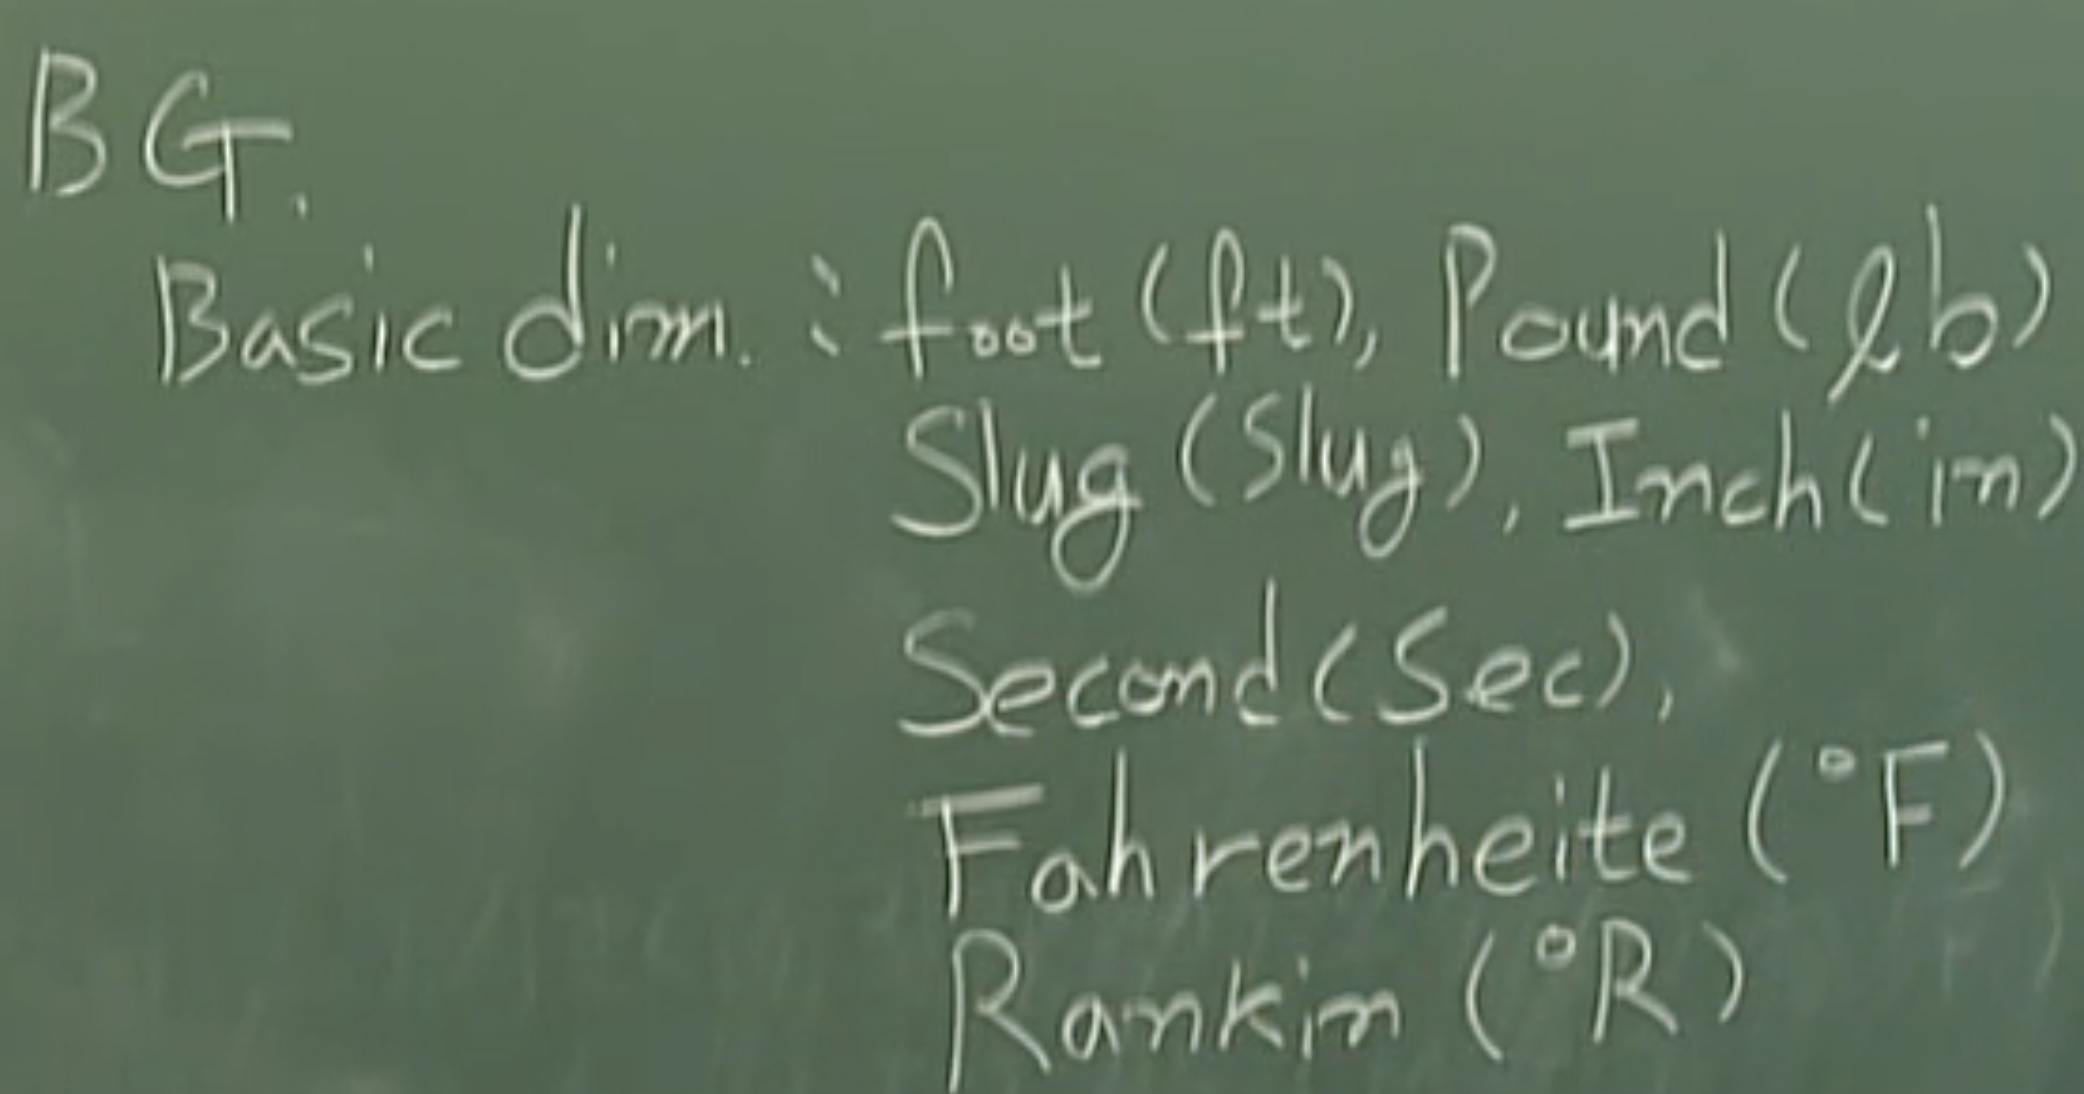 BG.
Basic dim. : foot (ft), Pound (lb)
Slug (Slug), Inch (in)
Second (Sec),
Fahrenheite (°F)
Rankin (°R)